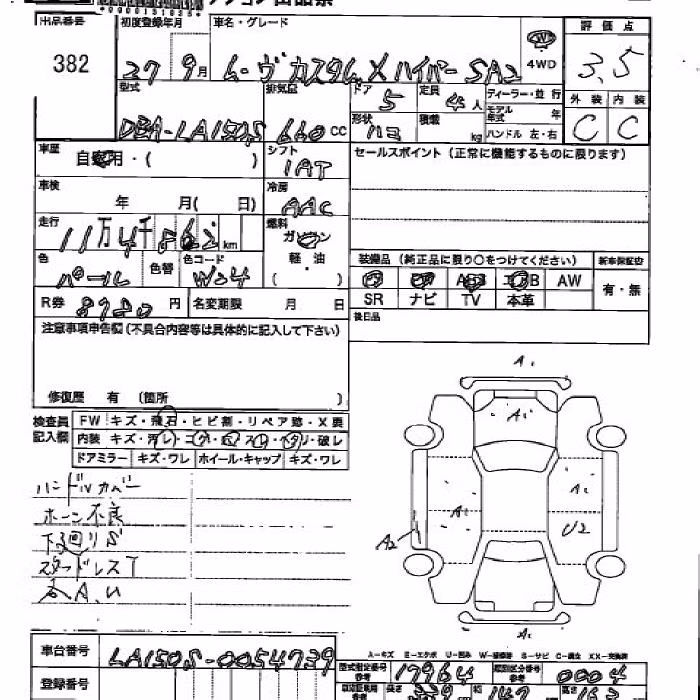 オークション出品票
出品番号 初度登録年月 車名・グレード 評価点
382 27 9月 ムーヴ カスタム X ハイパーSA2 4WD 3.5
型式 排気量 ドア 定員 ディーラー・並行 外装 内装
DBA-LA150S 660 CC 5 4人 モデル年式 年 C C
形状 積載 kg ハンドル 左・右
車歴 自家用・( ) シフト セールスポイント(正常に機能するものに限ります)
IAT
車検 年 月( 日) 冷房
AAC
走行 11万4千862km 燃料
ガソリン
色 色替 色コード 軽・油 装備品(純正品に限り〇をつけてください) 新車保証書
パール W24 ( ) AW 有・無
SR ナビ TV 本革
R券 8980円 名変期限 月 日 後日品
注意事項申告欄(不具合内容等は具体的に記入して下さい)
修復歴 有 (箇所 )
検査員記入欄 FW キズ・飛石・ヒビ割・リペア跡・X要
内装 キズ・汚レ・コゲ・穴・スレ・ハガレ・破レ
ドアミラー キズ・ワレ ホイール・キャップ キズ・ワレ
ハンドルカバー
ホーン不良
下廻りS
スタッドレスT
各A.U
A1
A1
A1
A1
A2
U2
A-キズ E-エクボ U-凹み W-補修跡 S-サビ C-腐食 XX-交換済
車台番号 LA150S-0054739
型式指定番号 参考 17964 類別区分番号 参考 0004
登録番号 長さ 339 cm 幅 147 高さ